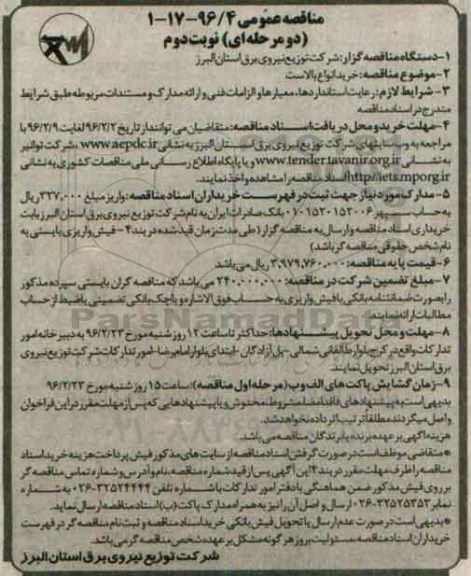 مناقصه عمومی ۹۶/۴-۱۷-۱
(دو مرحله ای) نوبت دوم
۱-دستگاه مناقصه گزار: شرکت توزیع نیروی برق استان البرز
۲-موضوع مناقصه: خرید انواع بالاست
۳- شرایط لازم: رعایت استانداردها، معیارها و الزامات فنی و ارائه مدارک و مستندات مربوطه طبق شرایط
مندرج در اسناد مناقصه
۴-مهلت خرید و محل دریافت اسناد مناقصه: متقاضیان می توانند از تاریخ ۹۶/۲/۲ لغایت ۹۶/۲/۹ با
مراجعه به وب سایتهای شرکت توزیع نیروی برق استان البرز به نشانی www.aepdc.ir، شرکت توانیر
به نشانی www.tender.tavanir.org.ir و یا پایگاه اطلاع رسانی ملی مناقصات کشوری به نشانی
http://iets.mporg.ir اسناد مناقصه را مشاهده و اخذ نمایند.
۵- مدارک مورد نیاز جهت ثبت در فهرست خریداران اسناد مناقصه: واریز مبلغ ۳۲۷,۰۰۰ ریال
به حساب سپهر ۰۱۰۱۵۲۰۱۵۲۰۰۶ بانک صادرات ایران به نام شرکت توزیع نیروی برق استان البرز بابت
خریداری اسناد مناقصه و ارسال به مناقصه گزار (طی مدت زمان قید شده در بند ۴ - فیش واریزی بایستی به
نام شخص حقوقی مناقصه گر باشد)
۶-قیمت پایه مناقصه: ۳,۹۷۹,۷۶۰,۰۰۰ ریال می باشد
۷-مبلغ تضمین شرکت در مناقصه: ۲۴۰,۰۰۰,۰۰۰ می باشد که مناقصه گران بایستی سپرده مذکور
را بصورت ضمانتنامه بانکی یا فیش واریزی به حساب فوق الاشاره و یا چک بانکی تضمینی یا ضبط از حساب
مطالبات ارائه نمایند.
۸-مهلت و محل تحویل پیشنهادها: حداکثر تا ساعت ۱۲ روز شنبه مورخ ۹۶/۲/۲۳ به دبیرخانه امور
تدارکات واقع در کرج بلوار طالقانی شمالی-پل آزادگان -ابتدای بلوار امام رضا-امور تدارکات شرکت توزیع نیروی
برق استان البرز تحویل نمایند.
۹-زمان گشایش پاکت های الف و ب (مرحله اول مناقصه): ساعت ۱۵ روز شنبه مورخ ۹۶/۲/۲۳
بدیهی است به پیشنهادهای فاقد امضا، مشروط، مخدوش و یا پیشنهادهایی که پس از مهلت مقرر در این فراخوان
واصل میگردند مطلقاً ترتیب اثر داده نخواهد شد.
هزینه آگهی بر عهده برنده یا برندگان مناقصه می باشد.
*متقاضی موظف است در صورت گرفتن اسناد مناقصه از سایت های مذکور فیش پرداخت هزینه خرید اسناد
مناقصه را ظرف مهلت مقرر در بند ۴ این آگهی پس از قید شماره مناقصه، نام و آدرس و شماره تماس مناقصه گر
بر روی فیش مذکور ضمن هماهنگی با دفتر امور تدارکات با شماره تلفن ۳۲۵۲۴۴۴۴-۰۲۶ به شماره
نمابر ۳۲۵۲۵۳۵۳-۰۲۶ ارسال و اصل آن را نیز به همراه مدارک پاکت (ب) اسناد مناقصه ارسال نماید.
*بدیهی است در صورت عدم ارسال یا تحویل فیش بانکی خرید اسناد مناقصه و ثبت نام مناقصه گر در فهرست
خریداران اسناد مناقصه مسئولیت بروز هر گونه مشکل بر عهده شخص مناقصه گر می باشد.
شرکت توزیع نیروی برق استان البرز